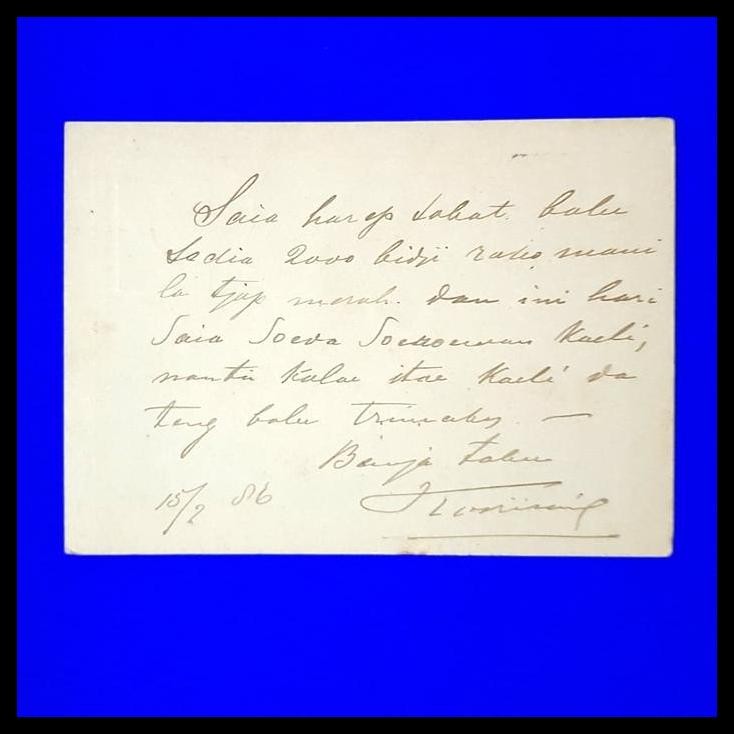 Saia harep sobat. bole
sedia 2000 bidji roko mani
la tjap merah. dan ini hari
Saia Soeda Soeroewan Koeli,
nanti kalae itoe Koeli da
teng bole trima
Banja tabee
15/2 86